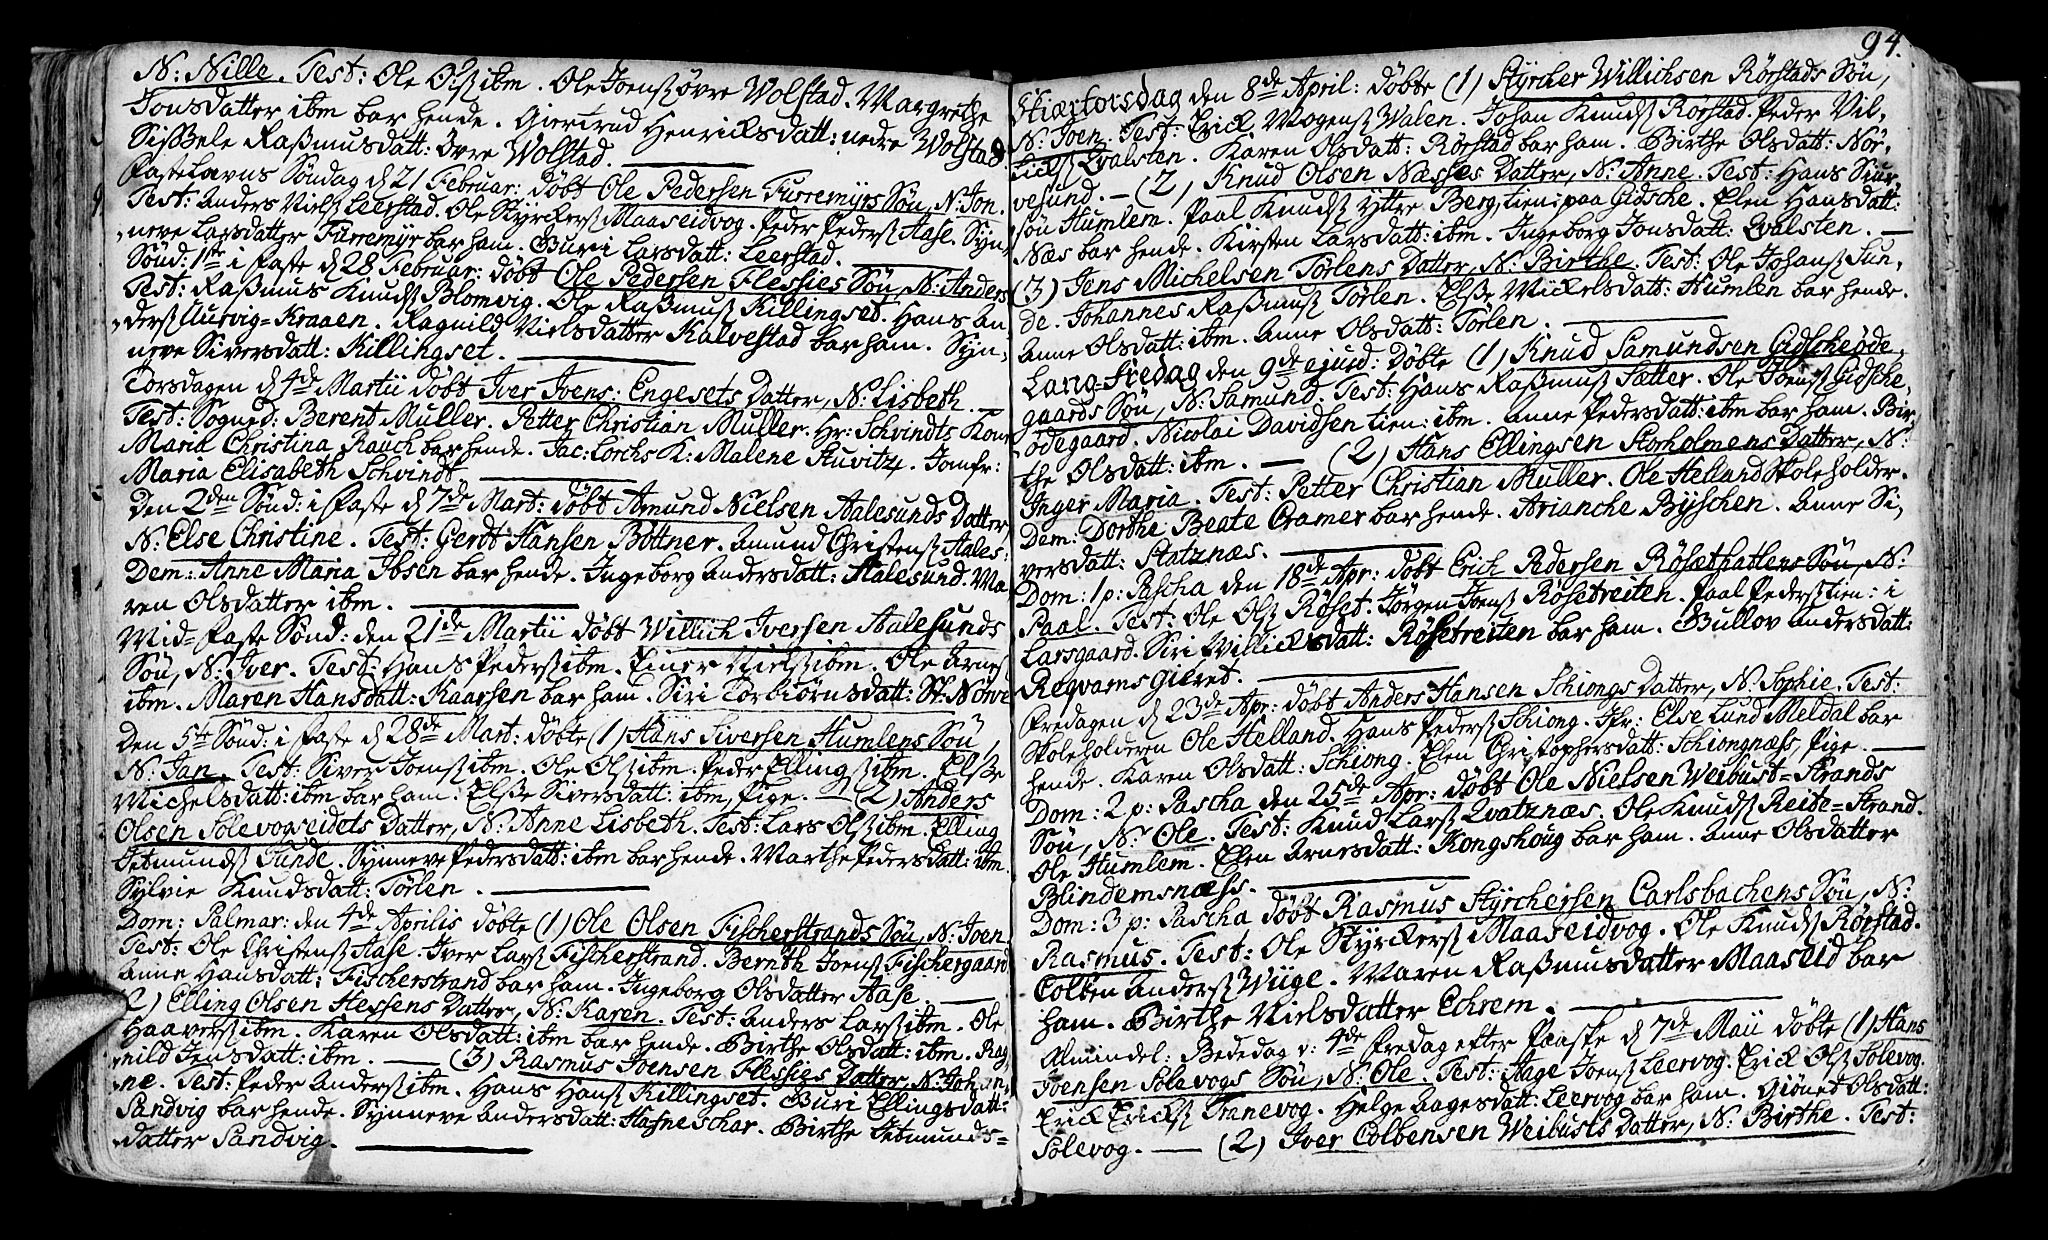 N: Nille. Test: Ole Olsß ibm. Ole Joensß øvre Wolstad. Margrethe
Jonsdatter ibm bar hende. Giertrud Henricksdatt: nedre Wolstad.
Sißele Raßmusdatt: øvre Wolstad.
Fastelavns Søndag d 21 Februar: døbt Ole Pedersen Furremyrs Søn, N: Jon.
Test: Anders Nielsß Leerstad. Ole Styrckersß Maaseidvog. Peder Pedersß Aase. Syn-
neve Larsdatter Furremyr bar ham. Buri Larsdatt: Leerstad.
Sønd: 1ste i faste d 28 Februar: døbt Ole Pedersen Flessies Søn, N: Anders
Test: Raßmus Knudsß Blomvig. Ole Raßmusß Killingset. Hans An-
dersß Aursvig=Kraaen. Ragnild Nielsdatter Kalvestad bar ham. Syn-
neve Siversdatt: Killingset.
Torsdagen d 4de Martii døbt Iver Ivens: Engesets Datter, N: Lisbeth.
Test: Sogned: Berent Muller. Petter Christian Muller. Hr: Schvindts Kone
Maria Christina Rauch bar hende. Jac: Lorchs K: Malene Huvitz. Jomfr:
Maria Elisabeth Schvindt.
Den 2den Sønd: i faste d 7de Mart: døbt Amund Nielsen Aalesunds Datter,
N: Else Christine. Test: Gerdt Hansen Bøttner. Amund Christensß Aales:
Dem: Anne Maria Ibsen bar hende. Ingeborg Andersdatt: Aalesund. Ma-
ren Olsdatter ibm.
Mid=faste Sønd: den 21de Martii døbt Willich Iversen Aalesunds
Søn, N: Iver. Test: Hans Pedersß ibm. Einer Nielsß ibm. Ole Arnesß
ibm. Maren Hansdatt: Kaarsen bar ham. Siri Torbiørnsdatt: St: Nørve
Den 5te Sønd: i faste d 28de Mart: døbte (1) Hans Siversen Humlens Søn,
N: Jan. Test: Siver Joensß ibm. Ole Olsß ibm. Peder Ellingsß ibm. Elße
Michelsdatt: ibm bar ham. Elße Siversdatt: ibm, pige. — (2) Anders
Olsen Solevogseidets Datter, N: Anne Lisbeth. Test: Lars Olsß ibm. Elling
Jetmundsß Sunde. Synneve Pedersdatt: ibm bar hende. Marthe Pedersdatt: ibm.
Sylvie Knudsdatt: Tørlen.
Dom: Palmar: den 4de Aprilis døbte (1) Ole Olsen Fischerstrands Søn, N: Joen
Test: Ole Christensß Aase. Iver Larsß Fischerstrand. Bernth Joensß Fischergaard
Anne Hansdatt: Fischerstrand bar ham. Ingeborg Olsdatter Aase. —
2) Elling Olsen Hessens Datter, N: Karen. Test: Anders Larsß ibm. Ole
Haaversß ibm. Karen Olsdatt: ibm bar hende. Birthe Olsdatt: ibm. Rag-
nild Jensdatt: ibm. — (3) Rasmus Joensen Flessies Datter, N: Johan-
ne. Test: Peder Andersß ibm. Hans Hansß Killingset. Buri Ellingsdatt:
Sandvig bar hende. Synneve Andersdatt: Hasneschar. Birthe Jetmunds-
datter Sandvig.
94.
Skiærtorsdag den 8de April: døbte (1) Styrcker Willichsen Rørstads Søn,
N: Joen. Test: Erick Mogensß Walen. Johan Knudsß Rørstad. Peder Vil-
lichsß Qvalsten. Karen Olsdatt: Rørstad bar ham. Birthe Olsdatt: Nør-
vesund. — (2) Knud Olsen Næsses Datter, N: Anne. Test: Hans Siur-
søn Humlem. Paal Knudsß Yttre Berg, tien: paa Gidsche. Elen Hansdatt:
Næs bar hende. Kirsten Larsdatt: ibm. Ingeborg Jonsdatt: Qvalsten. —
(3) Jens Michelsen Tørlens Datter, N: Birthe. Test: Ole Johansß Sun-
de. Johannes Raßmusß Tørlen. Elße Mickelsdatt: Humlen bar hende.
Anne Olsdatt: ibm. Anne Olsdatt: Tørlen.
Lang=fredag den 9de ejusd: Døbte (1) Knud Samundsen Gidscheøde-
gaards Søn, N: Samund. Test: Hans Raßmusß Sætter. Ole Joensß Gidsche-
ødegaard. Nicolai Davidsen tien: ibm. Anne Pedersdatt: ibm bar ham. Bir-
the Olsdatt: ibm. — (2) Hans Ellingsen Storholmens Datter, N:
Inger Maria. Test: Petter Christian Muller. Ole Helland Skoleholder.
Dem: Dorthe Beate Cramer bar hende. Arianche Byschen. Anne Si-
versdatt: Statznæs.
Dom: 1 p: Pascha den 18de Apr: døbt Erich Pedersen Røsethattens Søn, N:
Paal. Test: Ole Olsß Røset. Jørgen Joensß Røsetreiten. Paal Pedersß tien: i
Larsgaard. Siri Willicksdatt: Røsetreiten bar ham. Bullov Andersdatt:
Reqvams Gieret.
Fredagen d 23de Apr: døbt Anders Hansen Schiongs Datter, N: Sophie. Test:
Skoleholderen Ole Helland. Hans Pedersß Schiong. Jfr: Else Lund Meldal bar
hende. Karen Olsdatt: Schiong. Elen Christophersdatt: Schiongnæss, Pige. —
Dom: 2 p: Pascha den 25de Apr: døbt Ole Nielsen Weibust=Strands
Søn, N: Ole. Test: Knud Larsß Qvatznæs. Ole Knudsß Reite=Strand.
Ole Humlem. Elen Arnesdatt: Kongshoug bar ham. Anne Olsdatter
Blindemsnæss.
Dom: 3 p: Pascha døbt Rasmus Styrchersen Carlsbachens Søn, N:
Rasmus. Test: Ole Styrckersß Maaseidvog. Ole Knudsß Rørstad.
Colben Andersß Wiige. Maren Raßmusdatter Maaseid bar
ham. Birthe Nielsdatter Echrem.
Almindel: Bededag v: 4de fredag efter Paaske d 7de Maii døbte (1) Hans
Ivensen Solevogs Søn, N: Ole. Test: Aage Joensß Leervog. Erick Olsß Solevog
Erick Ericksß Tranevog. Helge Aagesdatt: Leervog bar ham. Giønet Olsdatt:
Solevog. — (2) Iver Colbensen Weibusts Datter, N: Birthe. Test: